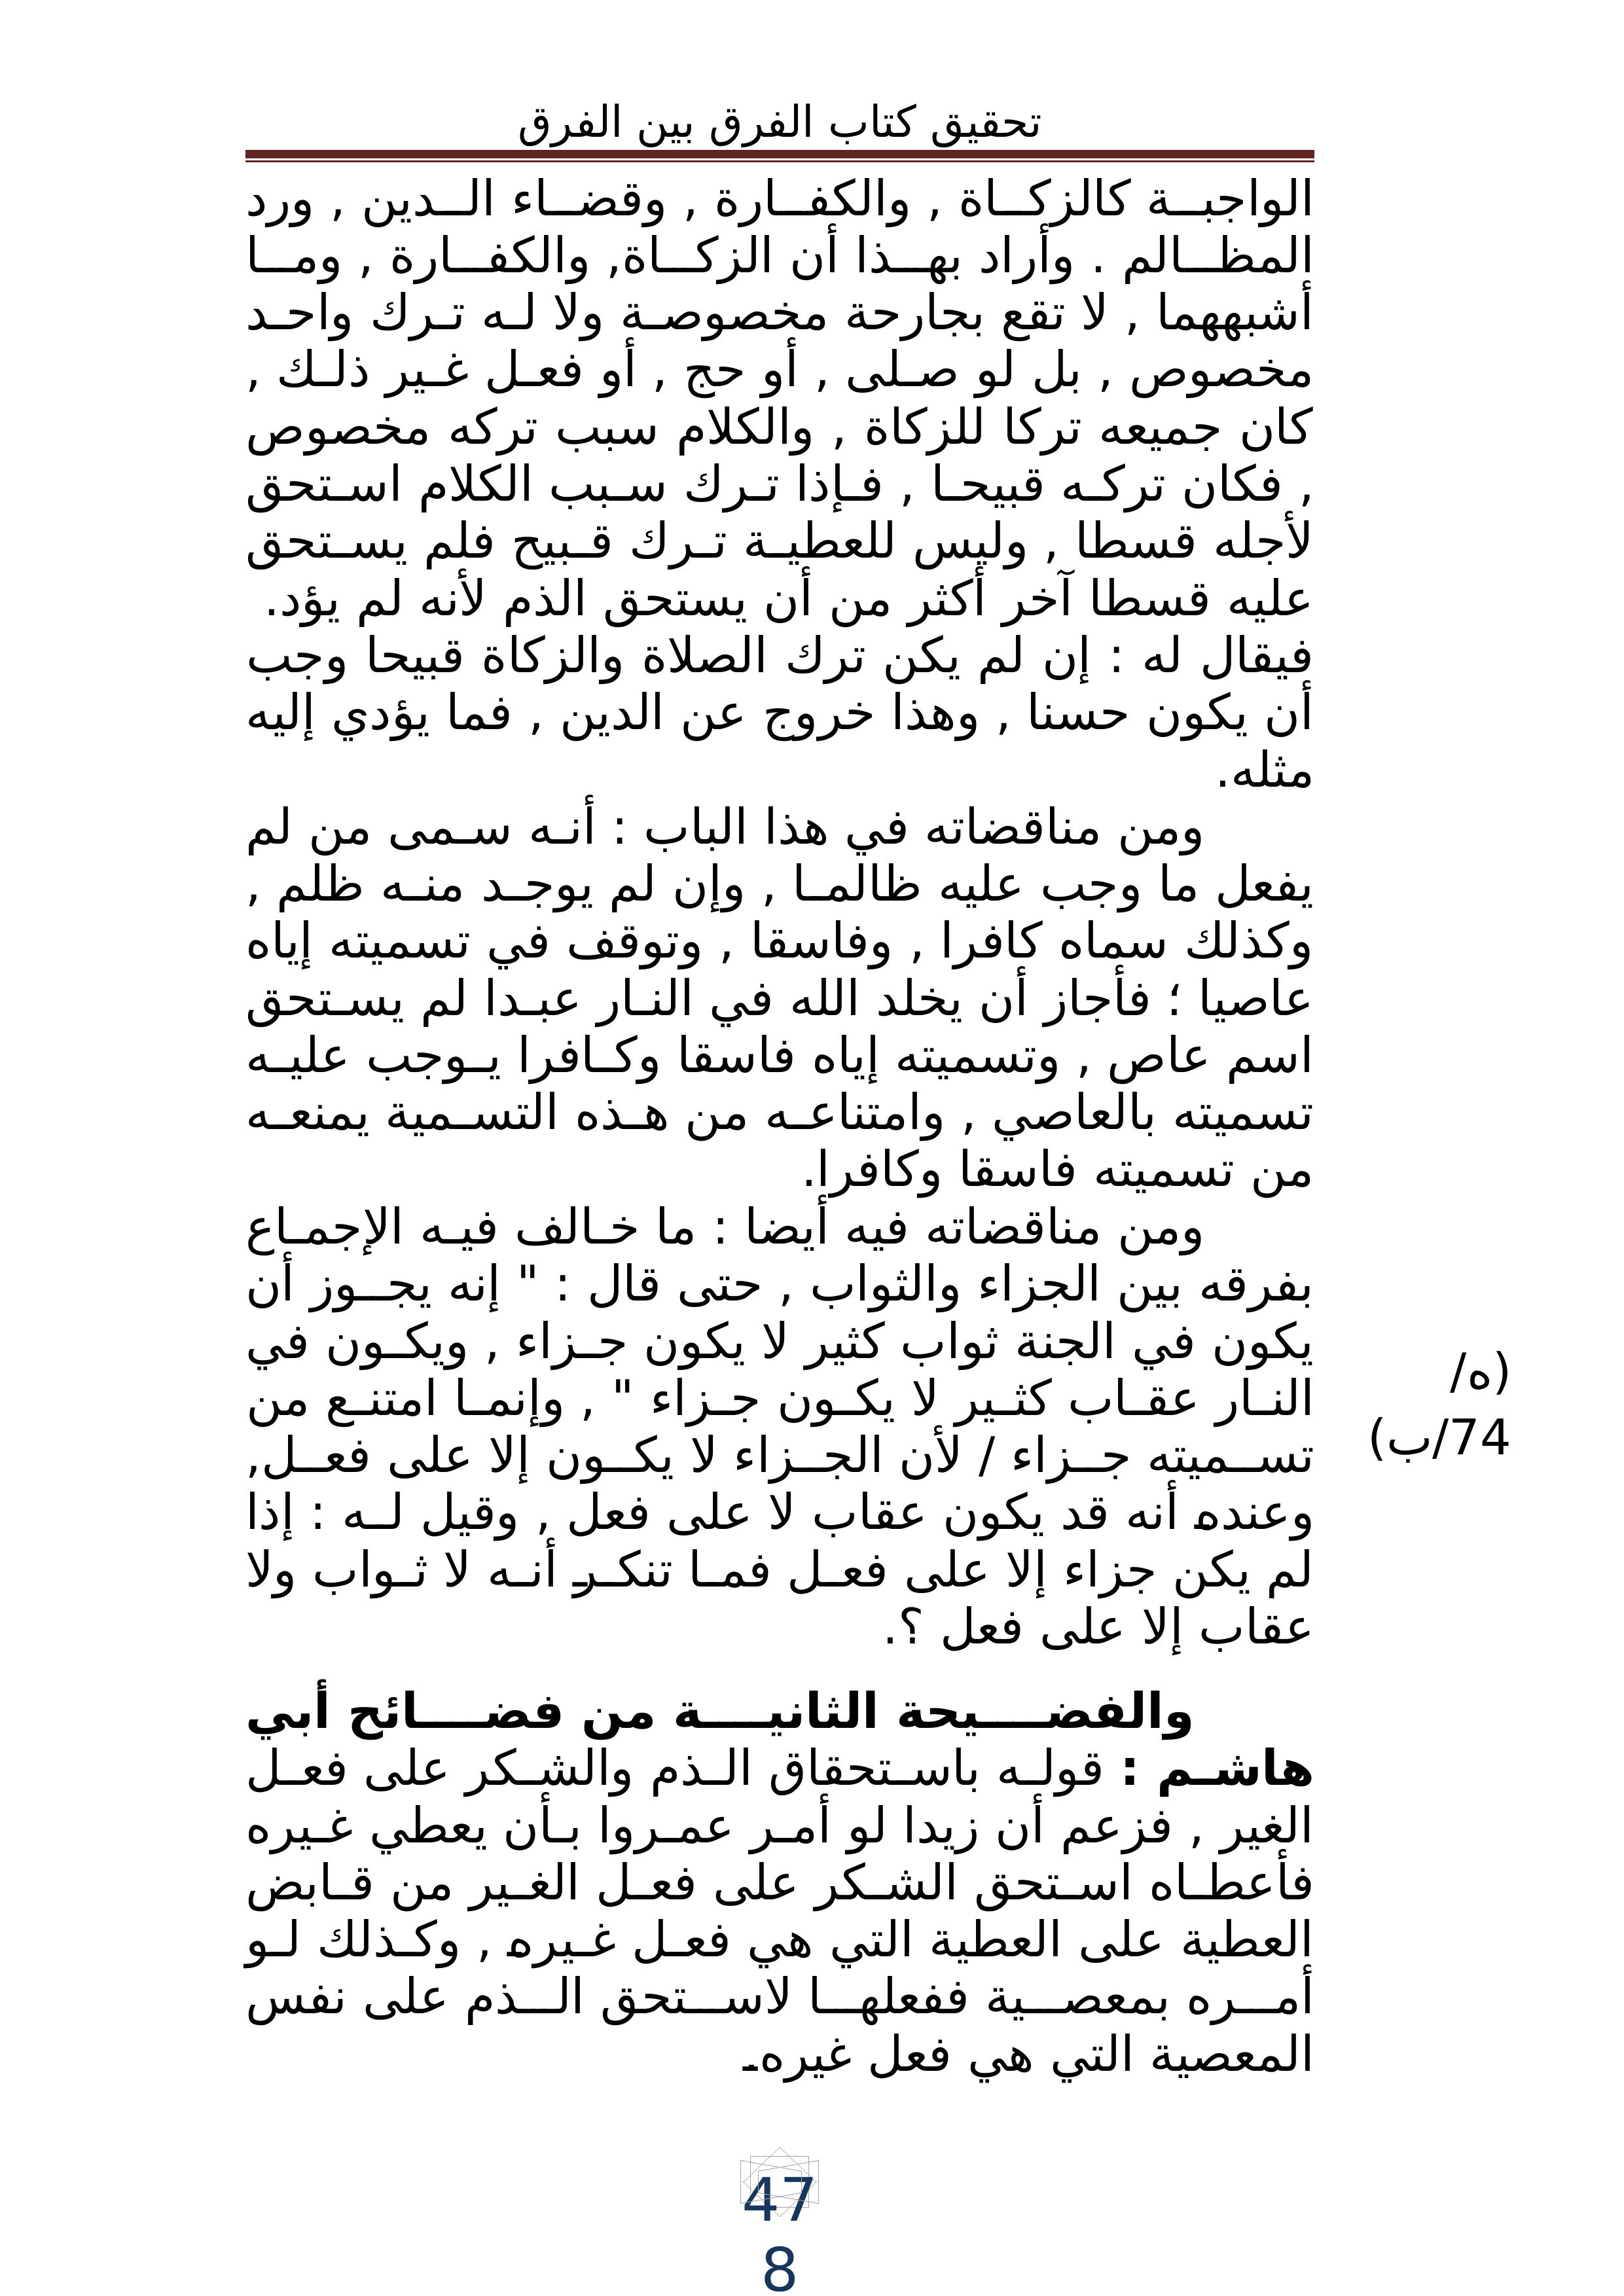 تحقيق كتاب الفرق بين الفرق
الواجبة كالزكاة , والكفارة , وقضاء الدين , ورد
المظالم . وأراد بهذا أن الزكاة, والكفارة , وما
أشبههما , لا تقع بجارحة مخصوصة ولا له ترك واحد
مخصوص , بل لو صلى , أو حج , أو فعل غير ذلك ,
كان جميعه تركا للزكاة , والكلام سبب تركه مخصوص
, فكان تركه قبيحا , فإذا ترك سبب الكلام استحق
لأجله قسطا , وليس للعطية ترك قبيح فلم يستحق
عليه قسطا آخر أكثر من أن يستحق الذم لأنه لم يؤد.
فيقال له : إن لم يكن ترك الصلاة والزكاة قبيحا وجب
أن يكون حسنا , وهذا خروج عن الدين , فما يؤدي إليه
مثله.
ومن مناقضاته في هذا الباب : أنه سمى من لم
يفعل ما وجب عليه ظالما , وإن لم يوجد منه ظلم ,
وكذلك سماه كافرا , وفاسقا , وتوقف في تسميته إياه
عاصيا ؛ فأجاز أن يخلد الله في النار عبدا لم يستحق
اسم عاص , وتسميته إياه فاسقا وكافرا يوجب عليه
تسميته بالعاصي , وامتناعه من هذه التسمية يمنعه
من تسميته فاسقا وكافرا.
ومن مناقضاته فيه أيضا : ما خالف فيه الإجماع
بفرقه بين الجزاء والثواب , حتى قال : " إنه يجوز أن
يكون في الجنة ثواب كثير لا يكون جزاء , ويكون في
النار عقاب كثير لا يكون جزاء " , وإنما امتنع من
تسميته جزاء / لأن الجزاء لا يكون إلا على فعل,
وعنده أنه قد يكون عقاب لا على فعل , وقيل له : إذا
لم يكن جزاء إلا على فعل فما تنكر أنه لا ثواب ولا
عقاب إلا على فعل ؟.
(ه/
74/ب)
والفضيحة الثانية من فضائح أبي
هاشم : قوله باستحقاق الذم والشكر على فعل
الغير , فزعم أن زيدا لو أمر عمروا بأن يعطي غيره
فأعطاه استحق الشكر على فعل الغير من قابض
العطية على العطية التي هي فعل غيره , وكذلك لو
أمره بمعصية ففعلها لاستحق الذم على نفس
المعصية التي هي فعل غيره.
47
8